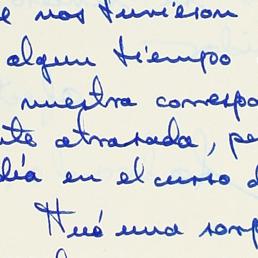 e nos tuvieron
algun tiempo
nuestra correspo
te atrasada, pe
día en el curso d
una sorp